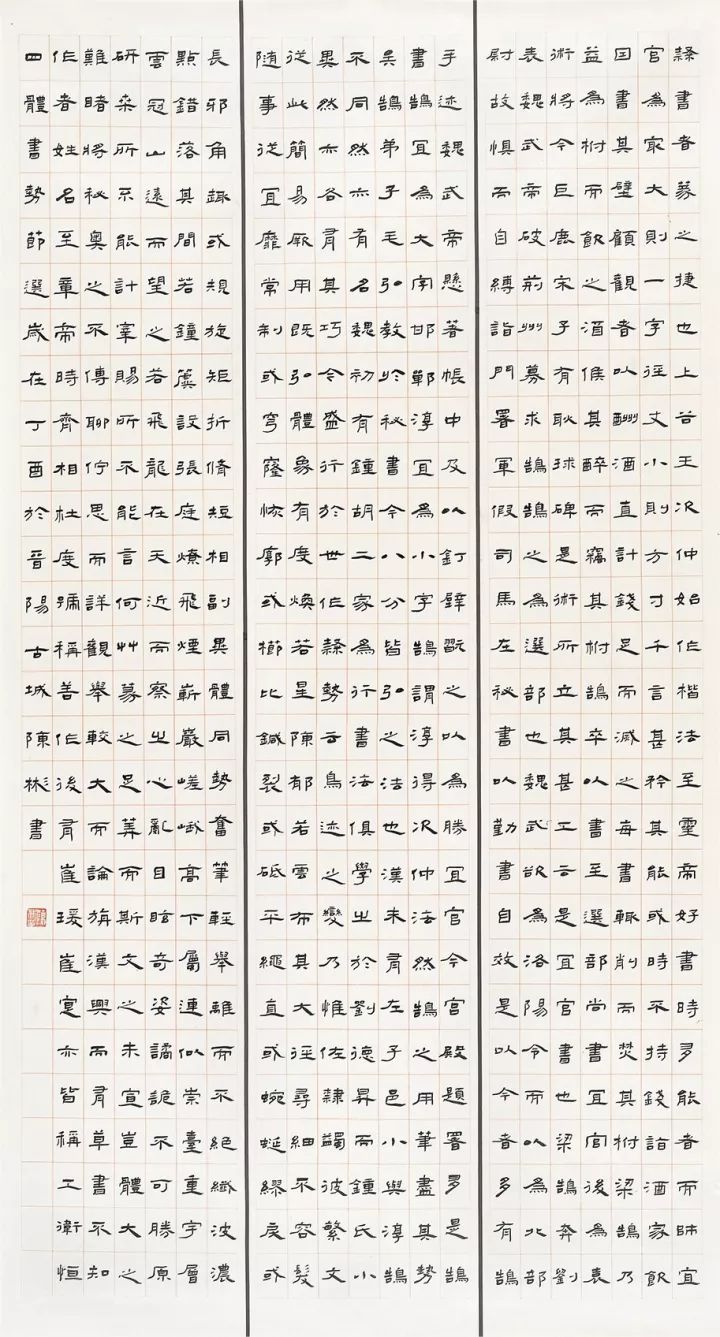 隸書者篆之捷也上谷王次仲始作楷法至靈帝好書時多能者而師宜
官為最大則一字徑丈小則方寸千言甚矜其能或時不持錢詣酒家飲
因書其壁顧觀者以酬酒直計錢足而滅之每書輒削而焚其柎梁鵠乃
益為柎而飲之酒候其醉而竊其柎鵠卒以書至選部尚書宜官後為袁
術將今巨鹿宋子有耿球碑是術所立其甚工云是宜官書也梁鵠奔劉
表魏武帝破荊州募求鵠鵠之為選部也魏武欲為洛陽令而以為北部
尉故懼而自縛詣門署軍假司馬在秘書以勤書自效是以今者多有鵠
手迹魏武帝懸著帳中及以釘壁翫之以為勝宜官今宮殿題署多是鵠
書鵠宜為大字邯鄲淳宜為小字鵠謂淳得次仲法然鵠之用筆盡其勢
吳鵠弟子毛弘教於秘書今八分皆弘之法也漢末有左子邑小與淳鵠
不同然亦有名魏初有鍾胡二家為行書法俱學之於劉德昇而鍾氏小
異然亦各有其巧今盛行於世作隸勢云鳥迹之變乃惟佐隸蠲彼繁文
從此簡易厥用既弘體象有度煥若星陳郁若雲布其大徑尋細不容髮
随事從宜靡常制或穹窿恢廓或櫛比鍼裂或砥平繩直或蜿蜒繆戾或
長邪角趣或規旋矩折脩短相副異體同勢奮筆輕舉離而不絕纖波濃
點錯落其間若鐘簴設張庭燎飛煙嶄巖嵯峨高下屬連似崇臺重宇層
雲冠山遠而望之若飛龍在天近而察之心亂目眩奇姿譎詭不可勝原
研桑所不能計宰賜所不能言何艸篆之足筭而斯文之未宣豈體大之
難睹將秘奧之不傳聊佇思而詳觀舉較大而論旃漢興而有草書不知
作者姓名至章帝時齊相杜度號稱善作後有崔瑗崔寔亦皆稱工衛恒
四體書勢節選歲在丁酉於晉陽古城陳彬書